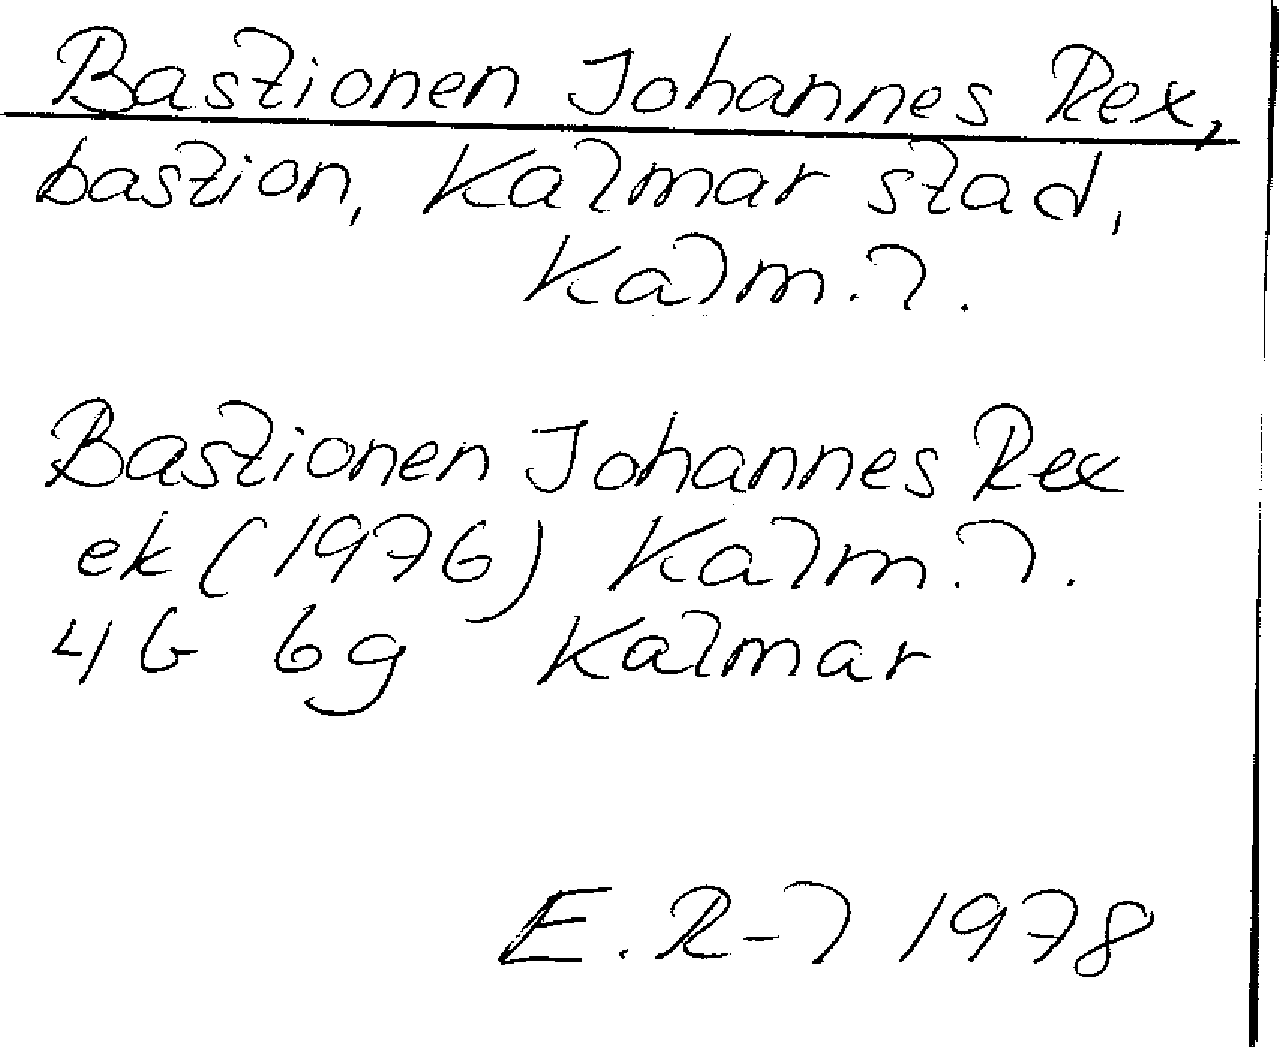 Bastionen Johannes Rex,
bastion, Kalmar stad,
Kalm. l.
Bastionen Johannes Rex
ek (1976) Kalm. l.
4G 6g Kalmar
E. R-l 1978